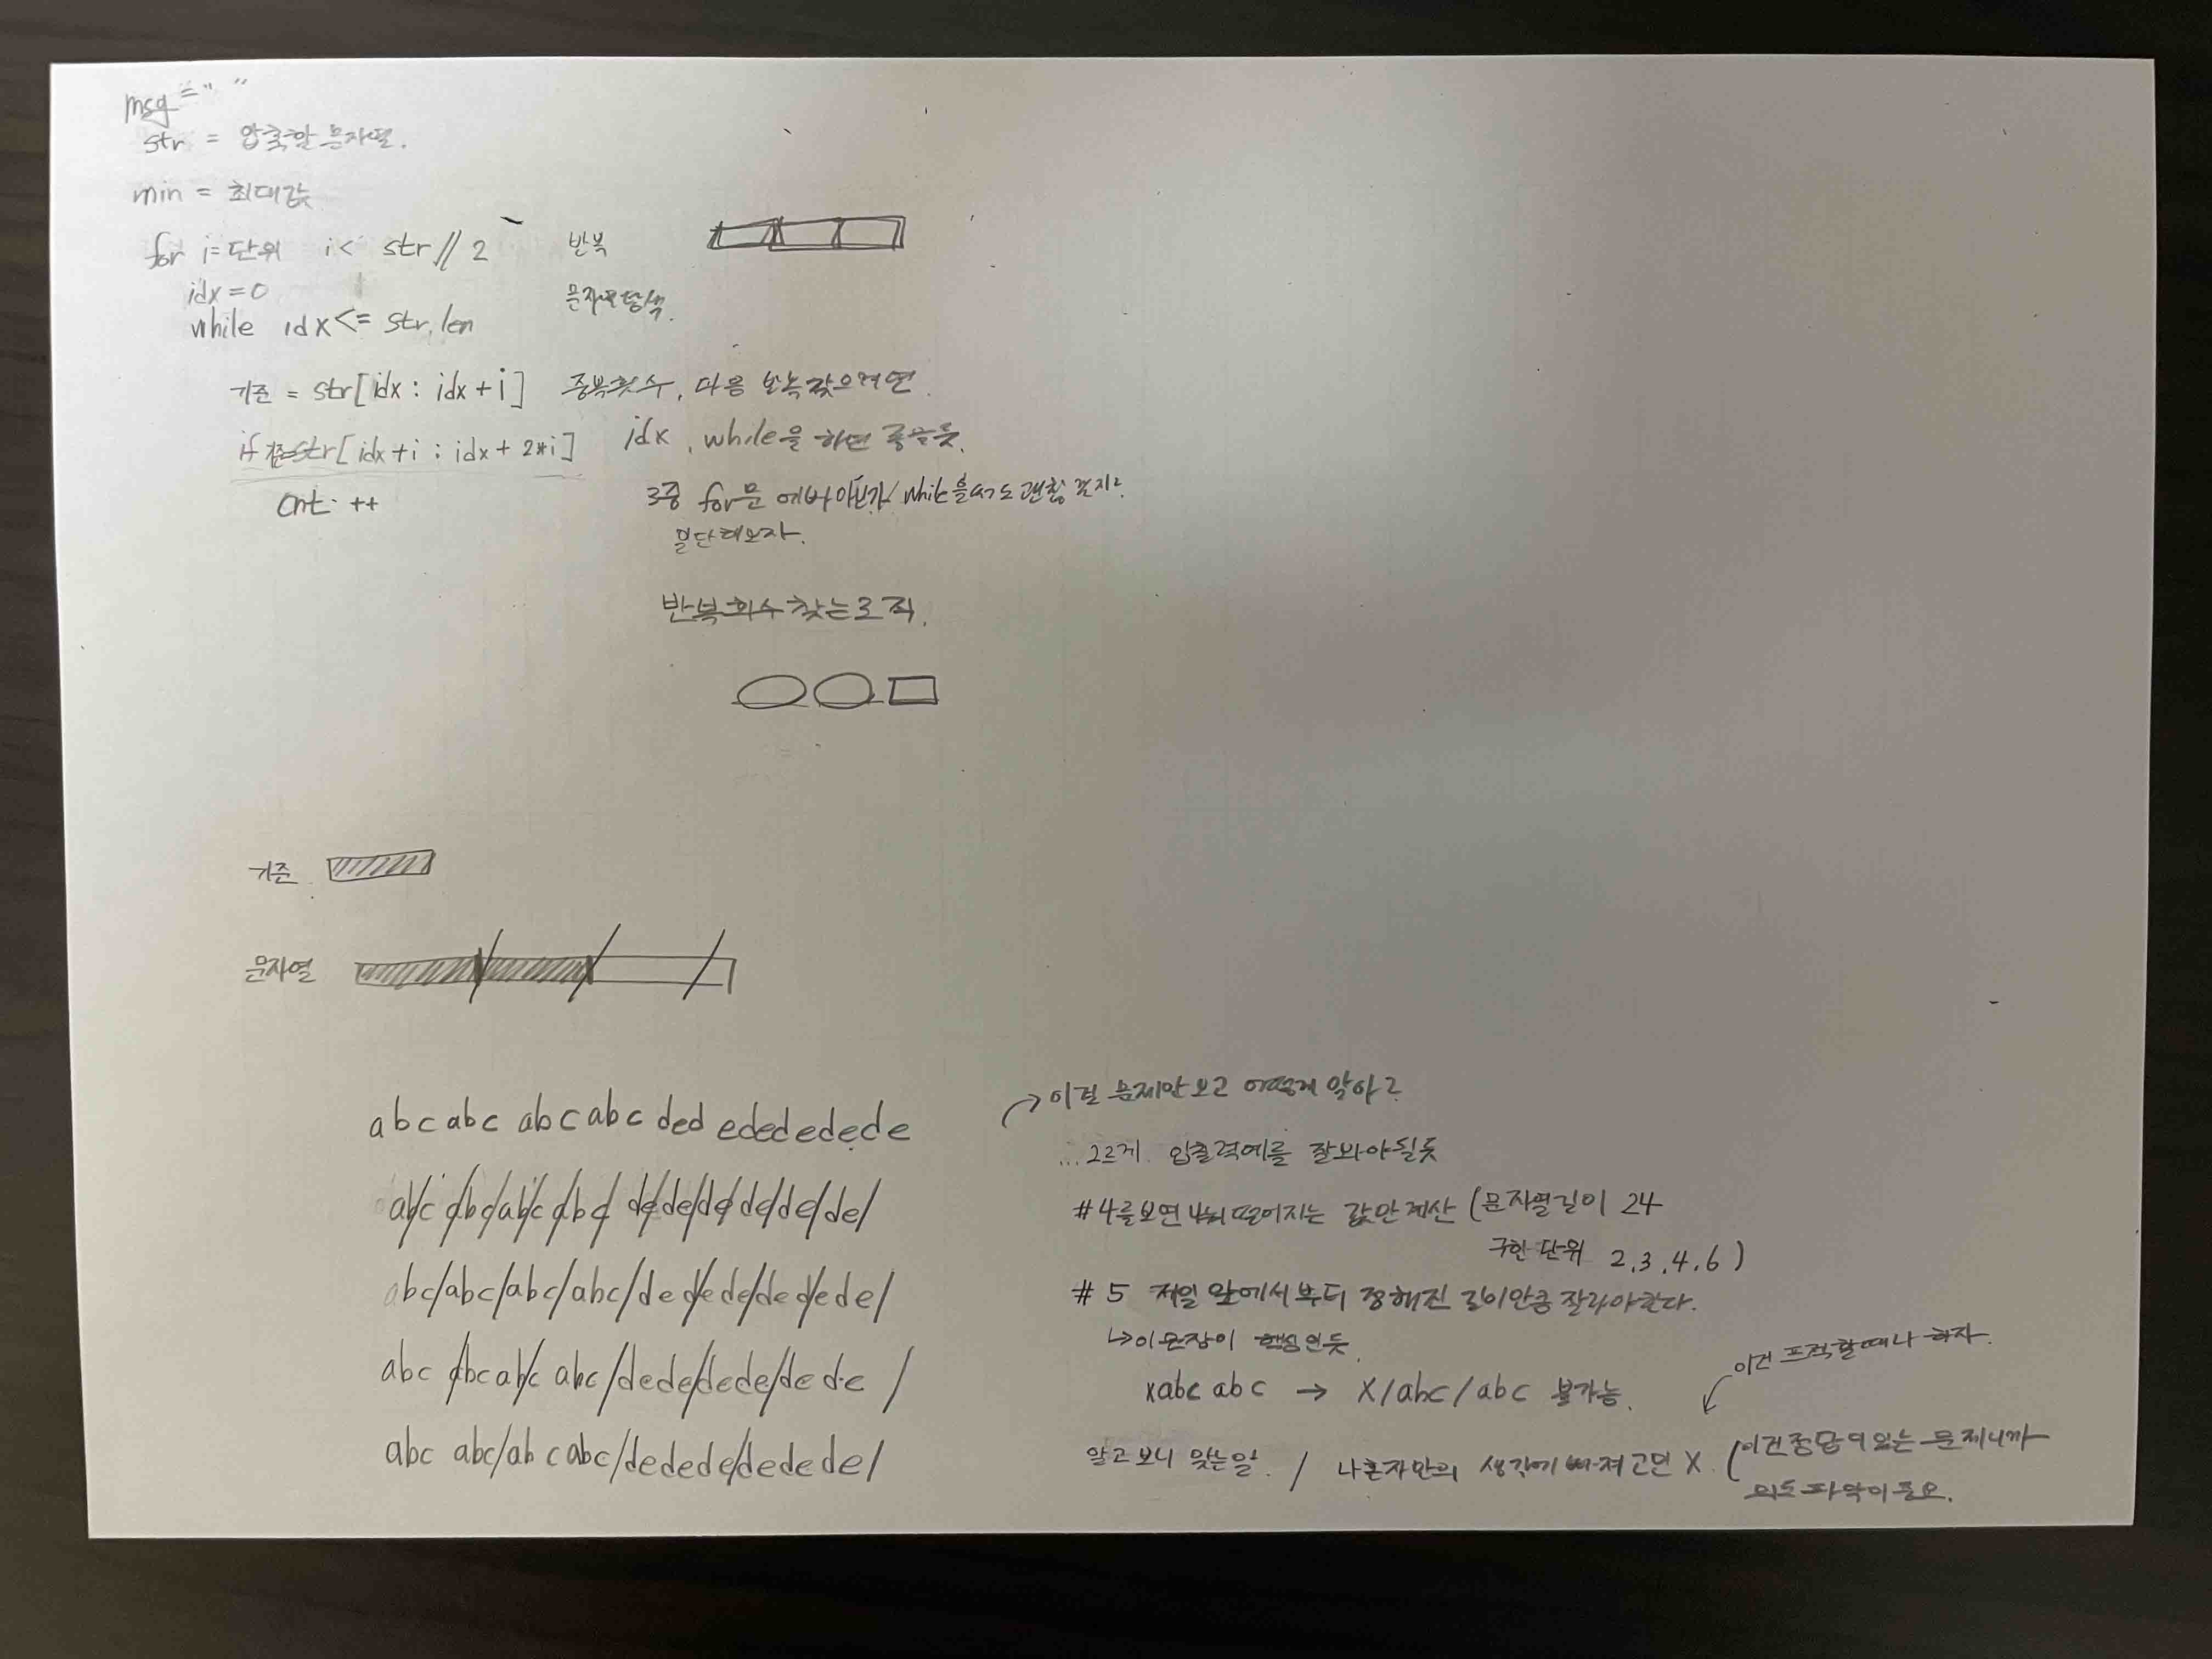 msg = " "
str = 압축할 문자열.
min = 최대값
for i=단위 i< str // 2 반복
idx = 0
문자열 탐색.
while idx <= str.len
기준 = str[idx : idx + i] 중복횟수, 다음 반복 찾으려면
if 기준=str[idx+i : idx + 2*i] idx, while을 하면 좋을듯.
cnt ++
3중 for문 에바 아닌가 while을 써도 괜찮겠지?
일단 해보자.
반복 회수 찾는 로직.
기준
문자열
abc abc abc abc ded ededededede
ab/c a/bc/ab/c a/bc/ de/de/de/de/de/de/
abc/abc/abc/abc/de d/e de/de d/e de/
abc a/bc ab/c abc/dede/dede/de de /
abc abc/ab c abc/dedede/dedede/
→ 이걸 문제안보고 어떻게 알아?
...그르게. 입출력예를 잘봐야될듯
#4를 보면 나눠 떨어지는 값만 계산 (문자열길이 24
구한 단위 2, 3, 4, 6 )
# 5 제일 앞에서부터 정해진 길이만큼 잘라야한다.
↳ 이 문장이 핵심인듯.
이건 프젝할때나 하자.
xabc abc → x/abc/abc 불가능.
알고 보니 맞는말. / 나혼자만의 생각에 빠져고면 X. (이건 정답이 있는 문제니까
의도 파악이 중요.